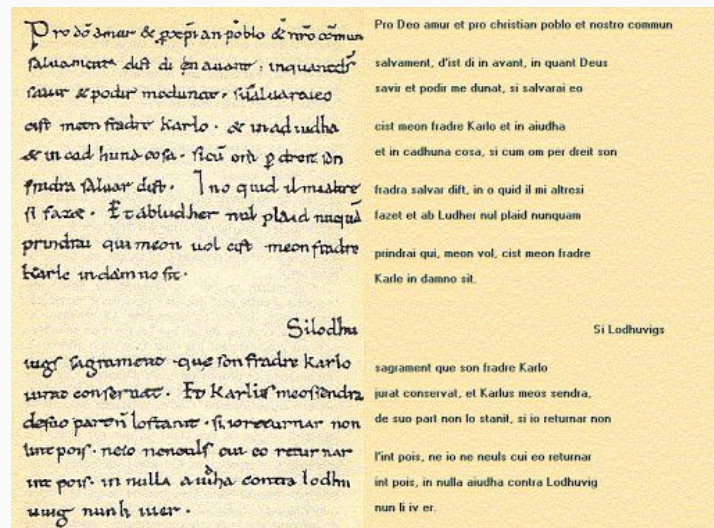 Pro dō amur & p xp̄ian poblo & nr̄o cōmun
saluament dist di en auant · inquantdś
sauir & podir medunat · sisaluaraieo
cist meon fradre Karlo · & in ad iudha
& in cad huna cosa · sicū om p dreit son
fradra saluar dist · Ino quid il mialtre
si fazet · Et abludher nul plaid nuquā
prindrai qui meon uol cist meon fradre
Karle in damno sit ·
Silodhu
uigs sagrament que son fradre karlo
iurat conseruat · Et Karlus meossendra
desuo partn̄ lostanit · si ioreturnar non
lint pois · neio neneuls cui eo returnar
int pois · in nulla aiudha contra lodhu
uuig nunli iuer ·
Pro Deo amur et pro christian poblo et nostro commun
salvament, d'ist di in avant, in quant Deus
savir et podir me dunat, si salvarai eo
cist meon fradre Karlo et in aiudha
et in cadhuna cosa, si cum om per dreit son
fradra salvar dift, in o quid il mi altresi
fazet et ab Ludher nul plaid nunquam
prindrai qui, meon vol, cist meon fradre
Karle in damno sit.
Si Lodhuvigs
sagrament que son fradre Karlo
jurat conservat, et Karlus meos sendra,
de suo part non lo stanit, si io returnar non
l'int pois, ne io ne neuls cui eo returnar
int pois, in nulla aiudha contra Lodhuvig
nun li iv er.